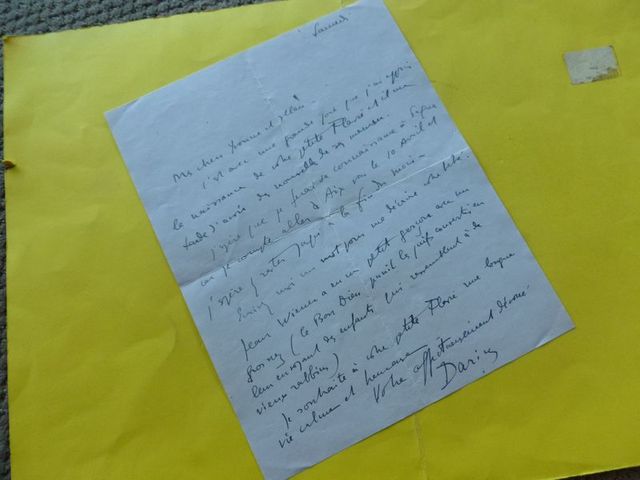 Samedi
Mes chers Yvonne et
C'est avec une grande joie que j'ai appris
la naissance de votre petite Flavie et il me
tarde d'avoir des nouvelles de
J'espère que je ferai sa connaissance à
car je compte aller à Aix vers le 10 Avril et
j'espère y rester jusqu'à la fin du mois
Envoyez moi un mot pour me décrire
Jean Wiener a eu un petit garçon avec un
gros nez (le Bon Dieu punit les juifs convertis en
leur envoyant des enfants qui ressemblent à de
vieux rabbins)
Je souhaite à votre petite Flavie une longue
vie calme et heureuse
Votre affectueusement dévoué